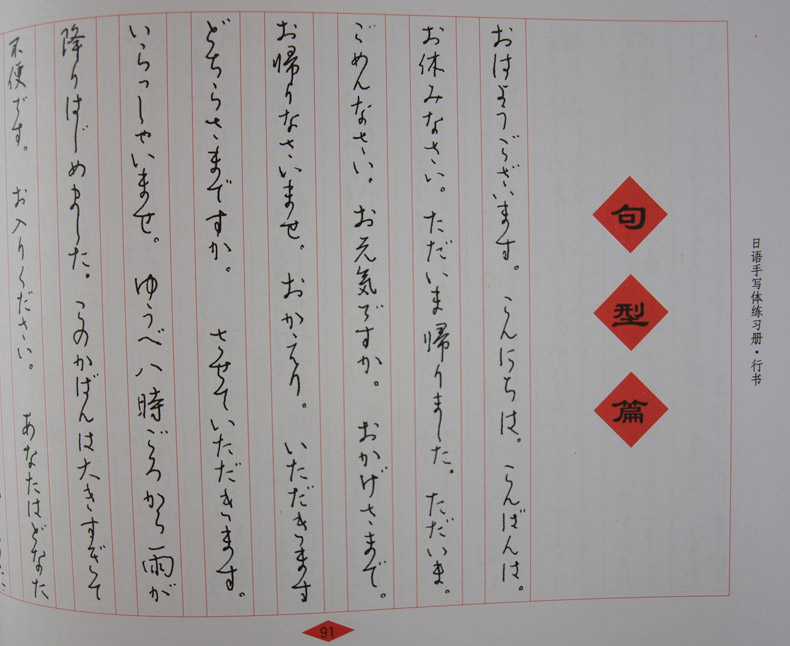 日语手写体练习册·行书
句型篇
おはようございます。こんにちは。こんばんは。
お休みなさい。ただいま帰りました。ただいま。
ごめんなさい。お元気ですか。おかげさまで。
お帰りなさいませ。おかえり。いただきます
どちらさまですか。させていただきます。
いらっしゃいませ。ゆうべ八時ごろから雨が
降りはじめました。このかばんは大きすぎて
不便です。お入りください。あなたはどなた
91